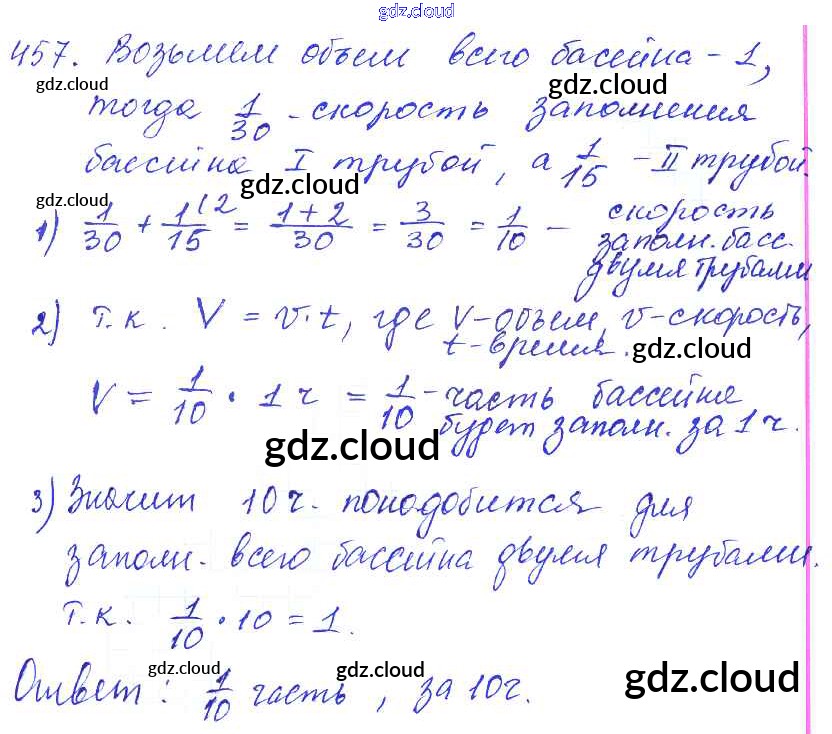 gdz.cloud
457. Возьмем объем всего басейна - 1,
gdz.cloud gdz.cloud
тогда 1/30 - скорость заполнения
бассейна I трубой, а 1/15 - II трубой.
gdz.cloud gdz.cloud
1) 1/30 + 1/15 (2 = 1+2/30 = 3/30 = 1/10 - скорость
заполн. басс.
двумя трубами
2) т.к. V = v·t, где V-объем, v-скорость,
t-время. gdz.cloud
V = 1/10 · 1 ч = 1/10 - часть бассейна
будет заполн. за 1 ч.
gdz.cloud
3) Значит 10 ч. понадобится для
заполн. всего бассейна двумя трубами.
т.к. 1/10 · 10 = 1.
gdz.cloud gdz.cloud gdz.cloud
Ответ: 1/10 часть, за 10 ч.